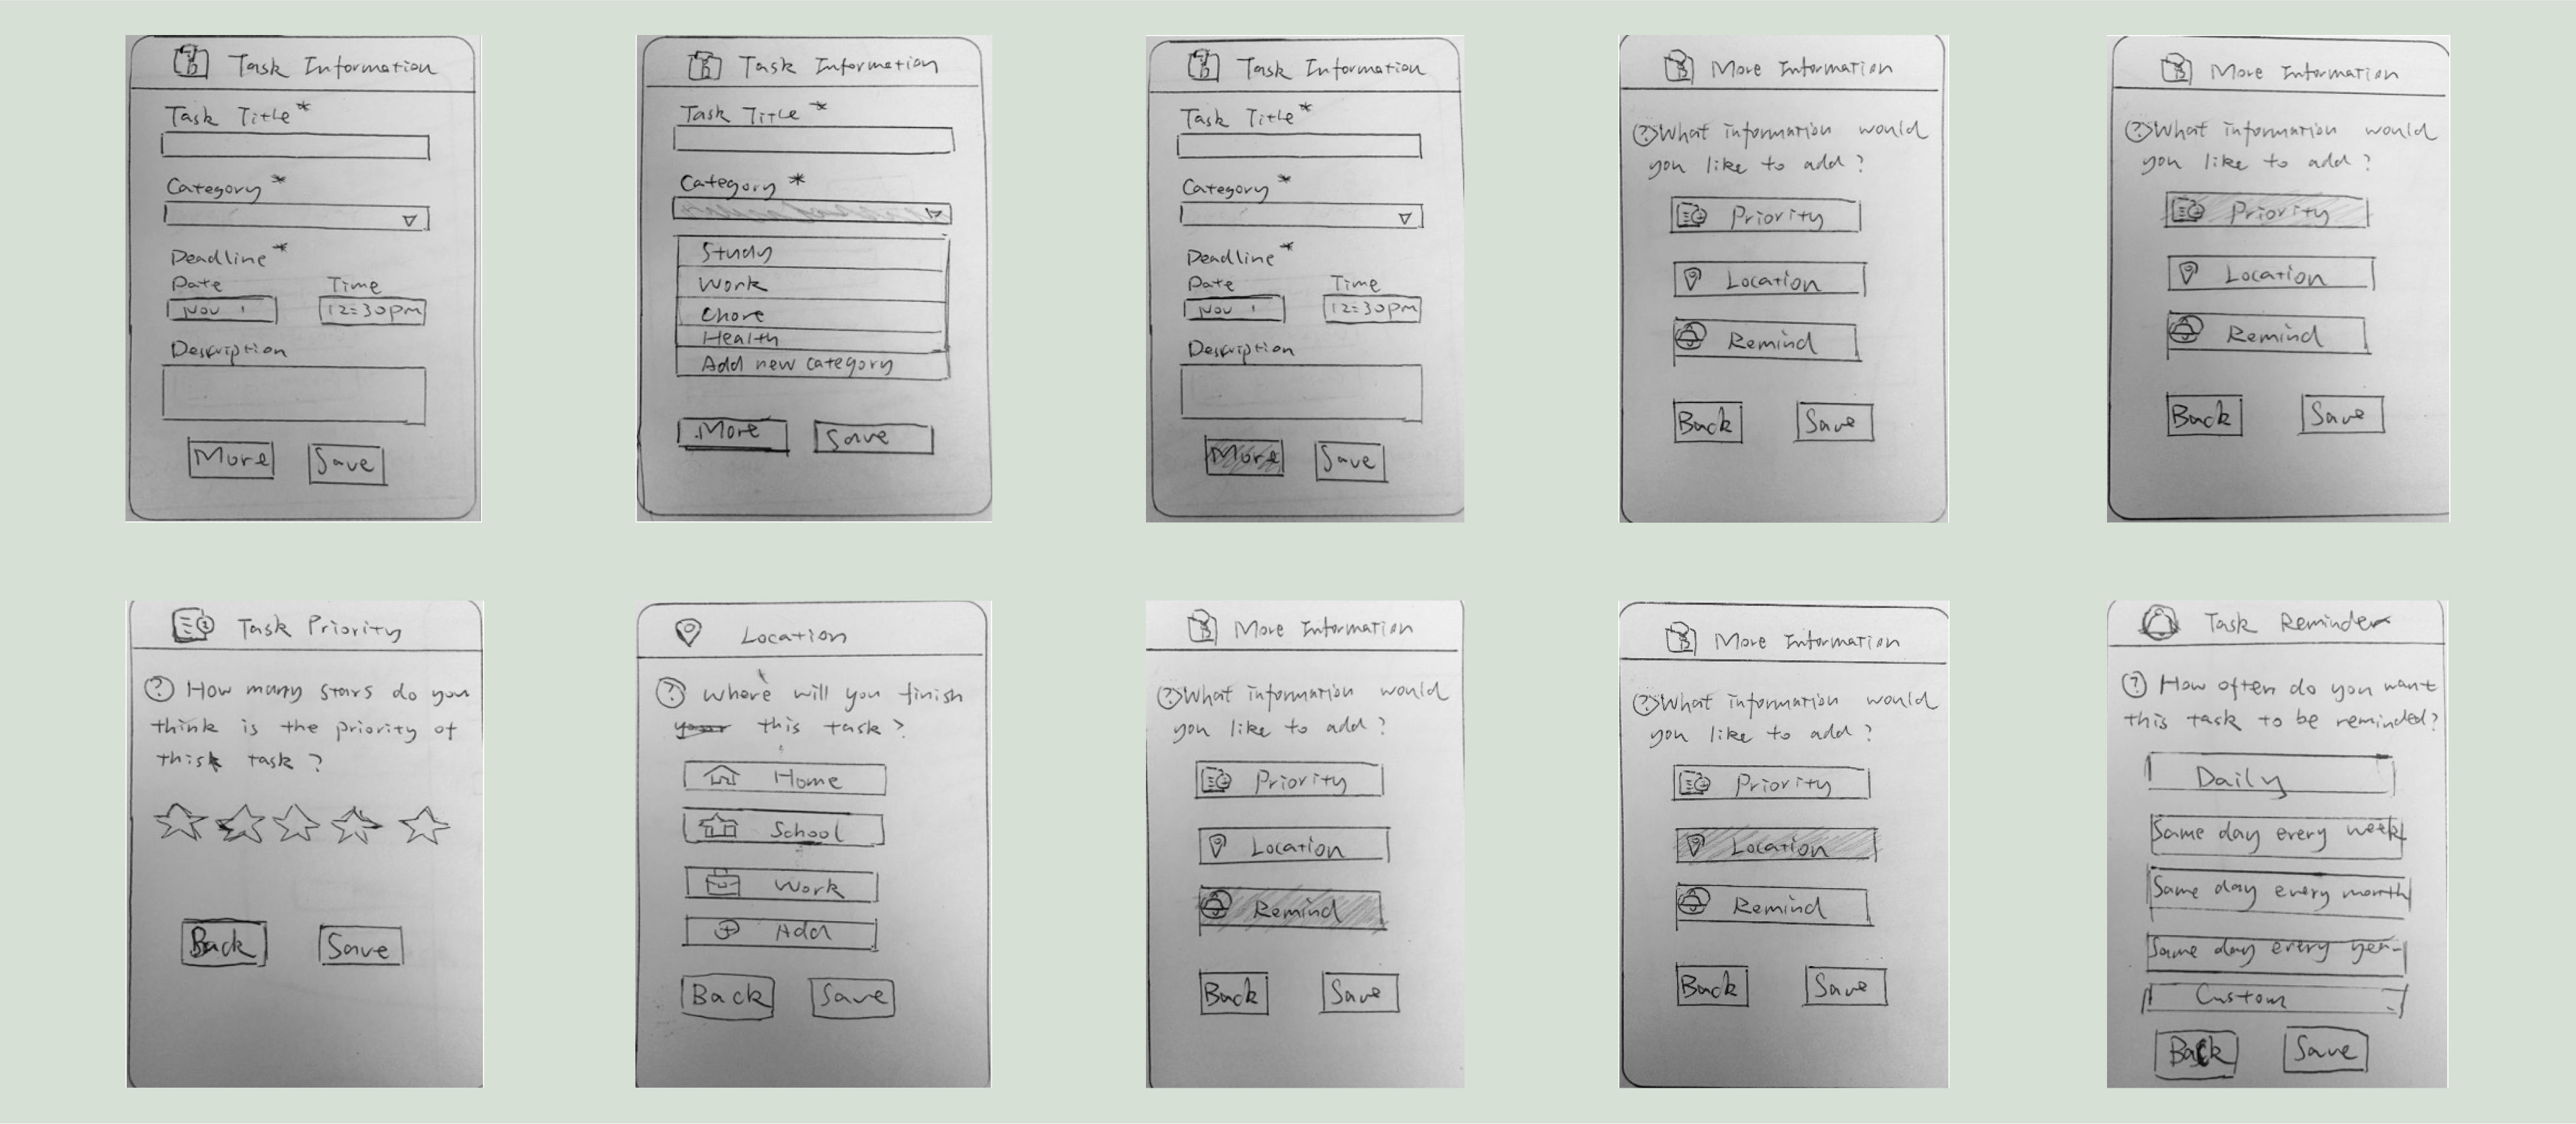 Task Information
Task Title *
Category *
Deadline *
Date Time
Nov 1 12:30pm
Description
More Save
Task Information
Task Title *
Category *
Study
Work
Chore
Health
Add new category
More Save
Task Information
Task Title *
Category *
Deadline *
Date Time
Nov 1 12:30pm
Description
More Save
More Information
? What information would
you like to add?
Priority
Location
Remind
Back Save
More Information
? What information would
you like to add?
Priority
Location
Remind
Back Save
Task Priority
? How many stars do you
think is the priority of
this task?
Back Save
Location
? where will you finish
this task?
Home
School
Work
Add
Back Save
More Information
? What information would
you like to add?
Priority
Location
Remind
Back Save
More Information
? What information would
you like to add?
Priority
Location
Remind
Back Save
Task Reminder
? How often do you want
this task to be reminded?
Daily
Same day every week
Same day every month
Same day every year
Custom
Back Save